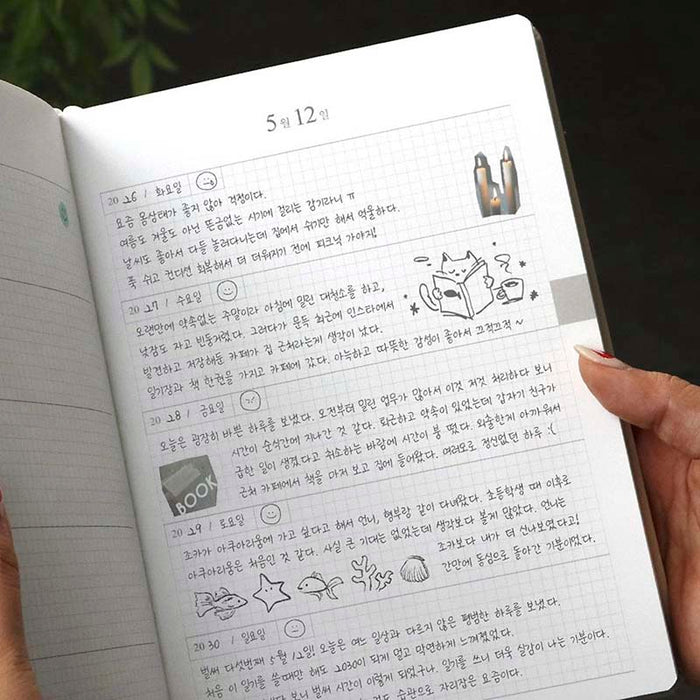 5월 12일
20 26 / 화요일
요즘 몸상태가 좋지 않아 걱정이다.
여름도 겨울도 아닌 뜬금없는 시기에 걸리는 감기라니 ㅠ
날씨도 좋아서 다들 놀러다니는데 집에서 쉬기만 해서 억울하다.
푹 쉬고 컨디션 회복해서 더 더워지기 전에 피크닉 가야지!
20 27 / 수요일
오랜만에 약속없는 주말이라 아침에 밀린 대청소를 하고,
낮잠도 자고 빈둥거렸다. 그러다가 문득 최근에 인스타에서
발견하고 저장해둔 카페가 집 근처라는게 생각이 났다.
일기장과 책 한권을 가지고 카페에 갔다. 아늑하고 따뜻한 감성이 좋아서 끄적끄적 ~
20 28 / 금요일
오늘은 굉장히 바쁜 하루를 보냈다. 오전부터 밀린 업무가 많아서 이것 저것 처리하다 보니
시간이 순식간에 지나간 것 같다. 퇴근하고 약속이 있었는데 갑자기 친구가
급한 일이 생겼다고 취소하는 바람에 시간이 붕 떴다. 외출한게 아까워서
근처 카페에서 책을 마저 보고 집에 들어왔다. 여러모로 정신없던 하루 :(
BOOK
20 29 / 토요일
조카가 아쿠아리움에 가고 싶다고 해서 언니, 형부랑 같이 다녀왔다. 초등학생 때 이후로
아쿠아리움은 처음인 것 같다. 사실 큰 기대는 없었는데 생각보다 볼게 많았다. 언니는
조카보다 내가 더 신나보였다고!
간만에 동심으로 돌아간 기분이었다.
20 30 / 일요일
벌써 다섯번째 5월 12일! 오늘은 여느 일상과 다르지 않은 평범한 하루를 보냈다.
처음 이 일기를 쓸때만 해도 2030이 되게 멀고 막연하게 느껴졌었다.
벌써 시간이 이렇게 되었구나. 일기를 쓰니 더욱 실감이 나는 기분이다.
습관으로 자리잡은 요즘이다.